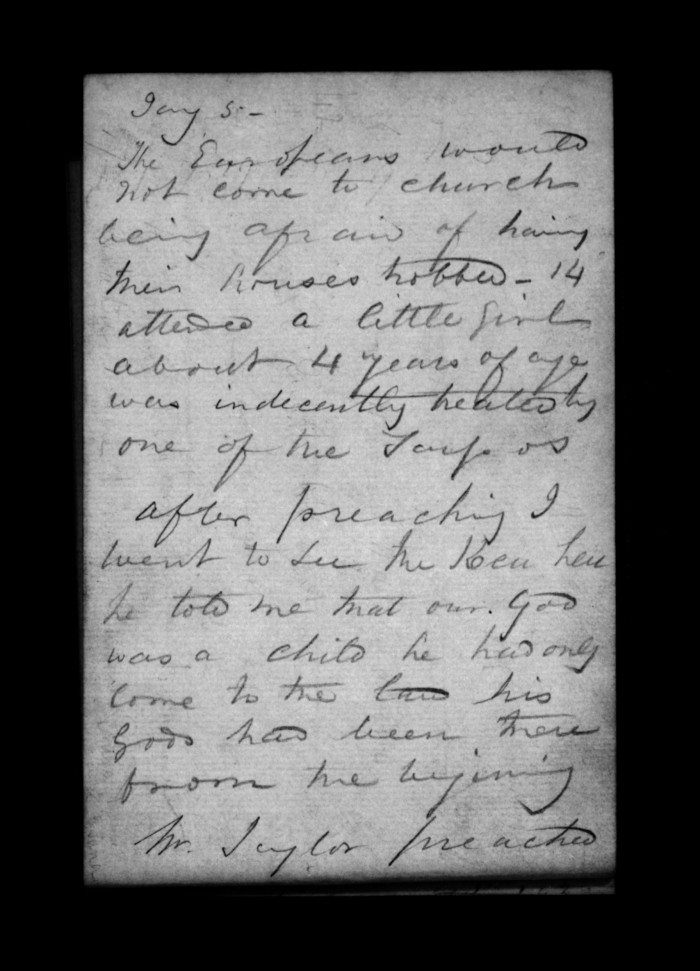 Jany 5.-
The Europeans would
not come to church
being afraid of having
their houses robbed - 14
attended a little girl
about 4 years of age
was indecently treated by
one of the
after preaching I
went to see the Heu heu
he told me that our God
was a child he had only
come to the land his
Gods had been there
from the begining
Mr. Taylor preached